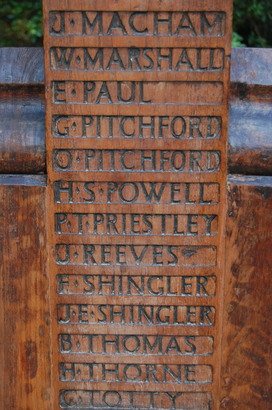 J·MACHAM
W·MARSHALL
E·PAUL
G·PITCHFORD
O·PITCHFORD
H·S·POWELL
P·T·PRIESTLEY
J·REEVES
F·SHINGLER
J·E·SHINGLER
B·THOMAS
H·THORNE